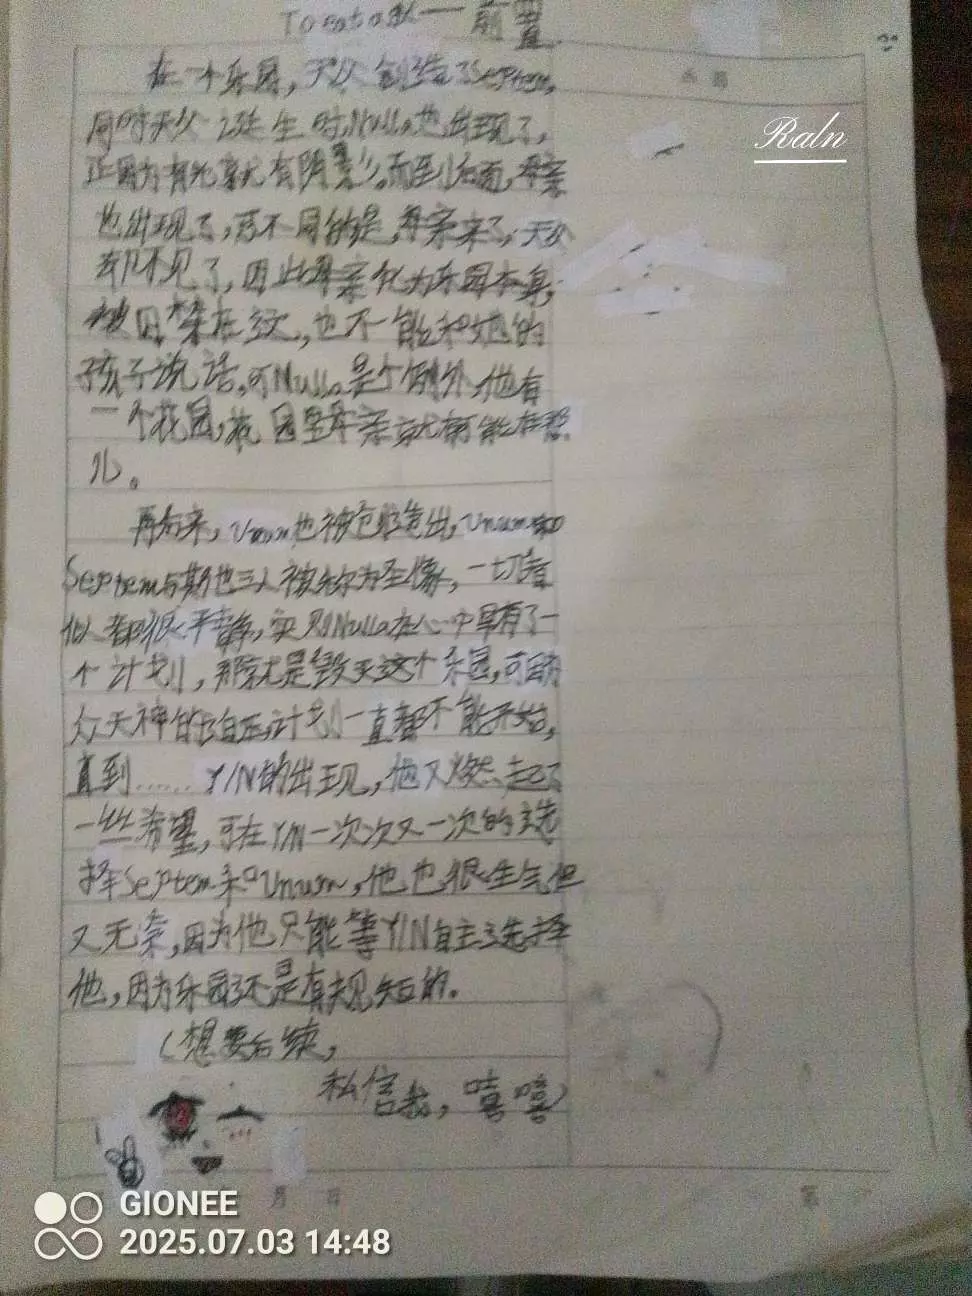 前置
在一个乐园，天父创造了Septem，
同时天父诞生时，Nulla也出现了，
正因为有光就有阴影。而到后面，母亲
也出现了，可不同的是，母亲来了，天父
却不见了，因此母亲化为乐园本身，
被囚禁在，也不能和她的
孩子说话，可Nulla是个例外，他有
一个花园，花园里母亲就有可能在那
儿。
再后来，Unum也被创造出，Unum和
Septem与其他三人被称为圣像，一切看
似都很平静，实则Nulla在心中早有了一
个计划，那就是毁灭这个乐园，可因
众天神的，计划一直都不能开始，
直到……Y/N的出现，他又燃起了
一丝希望，可在Y/N一次次又一次的选
择Septem和Unum，他也很生气但
又无奈，因为他只能等Y/N自主选择
他，因为乐园还是有规矩的。
（想要后续，
私信我，嘻嘻）
Raln
月 日
第
GIONEE
2025.07.03 14:48